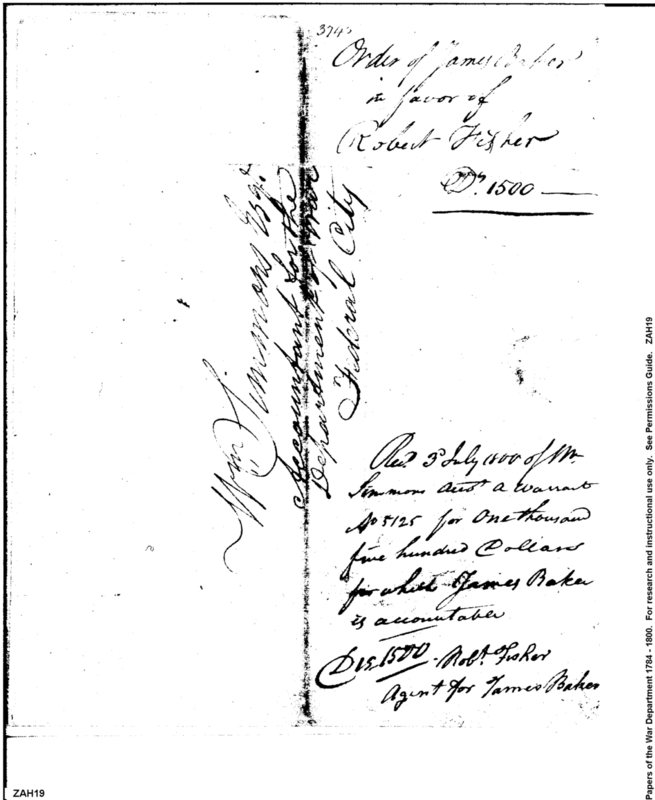 374
Order of James Baker
in favor of
Robert Fisher
Dr. 1500
Wm Simmons Esqr.
Accountant for the
Department of War
Federal City
Recd. 3d July 1800 of Wm
Simmons acct a Warrant
No 5125 for One thousand
five hundred Dollars
for which James Baker
is accountable
Dls 1500 Robt. Fisher
Agent for James Baker
Papers of the War Department 1784 - 1800. For research and instructional use only. See Permissions Guide. ZAH19
ZAH19